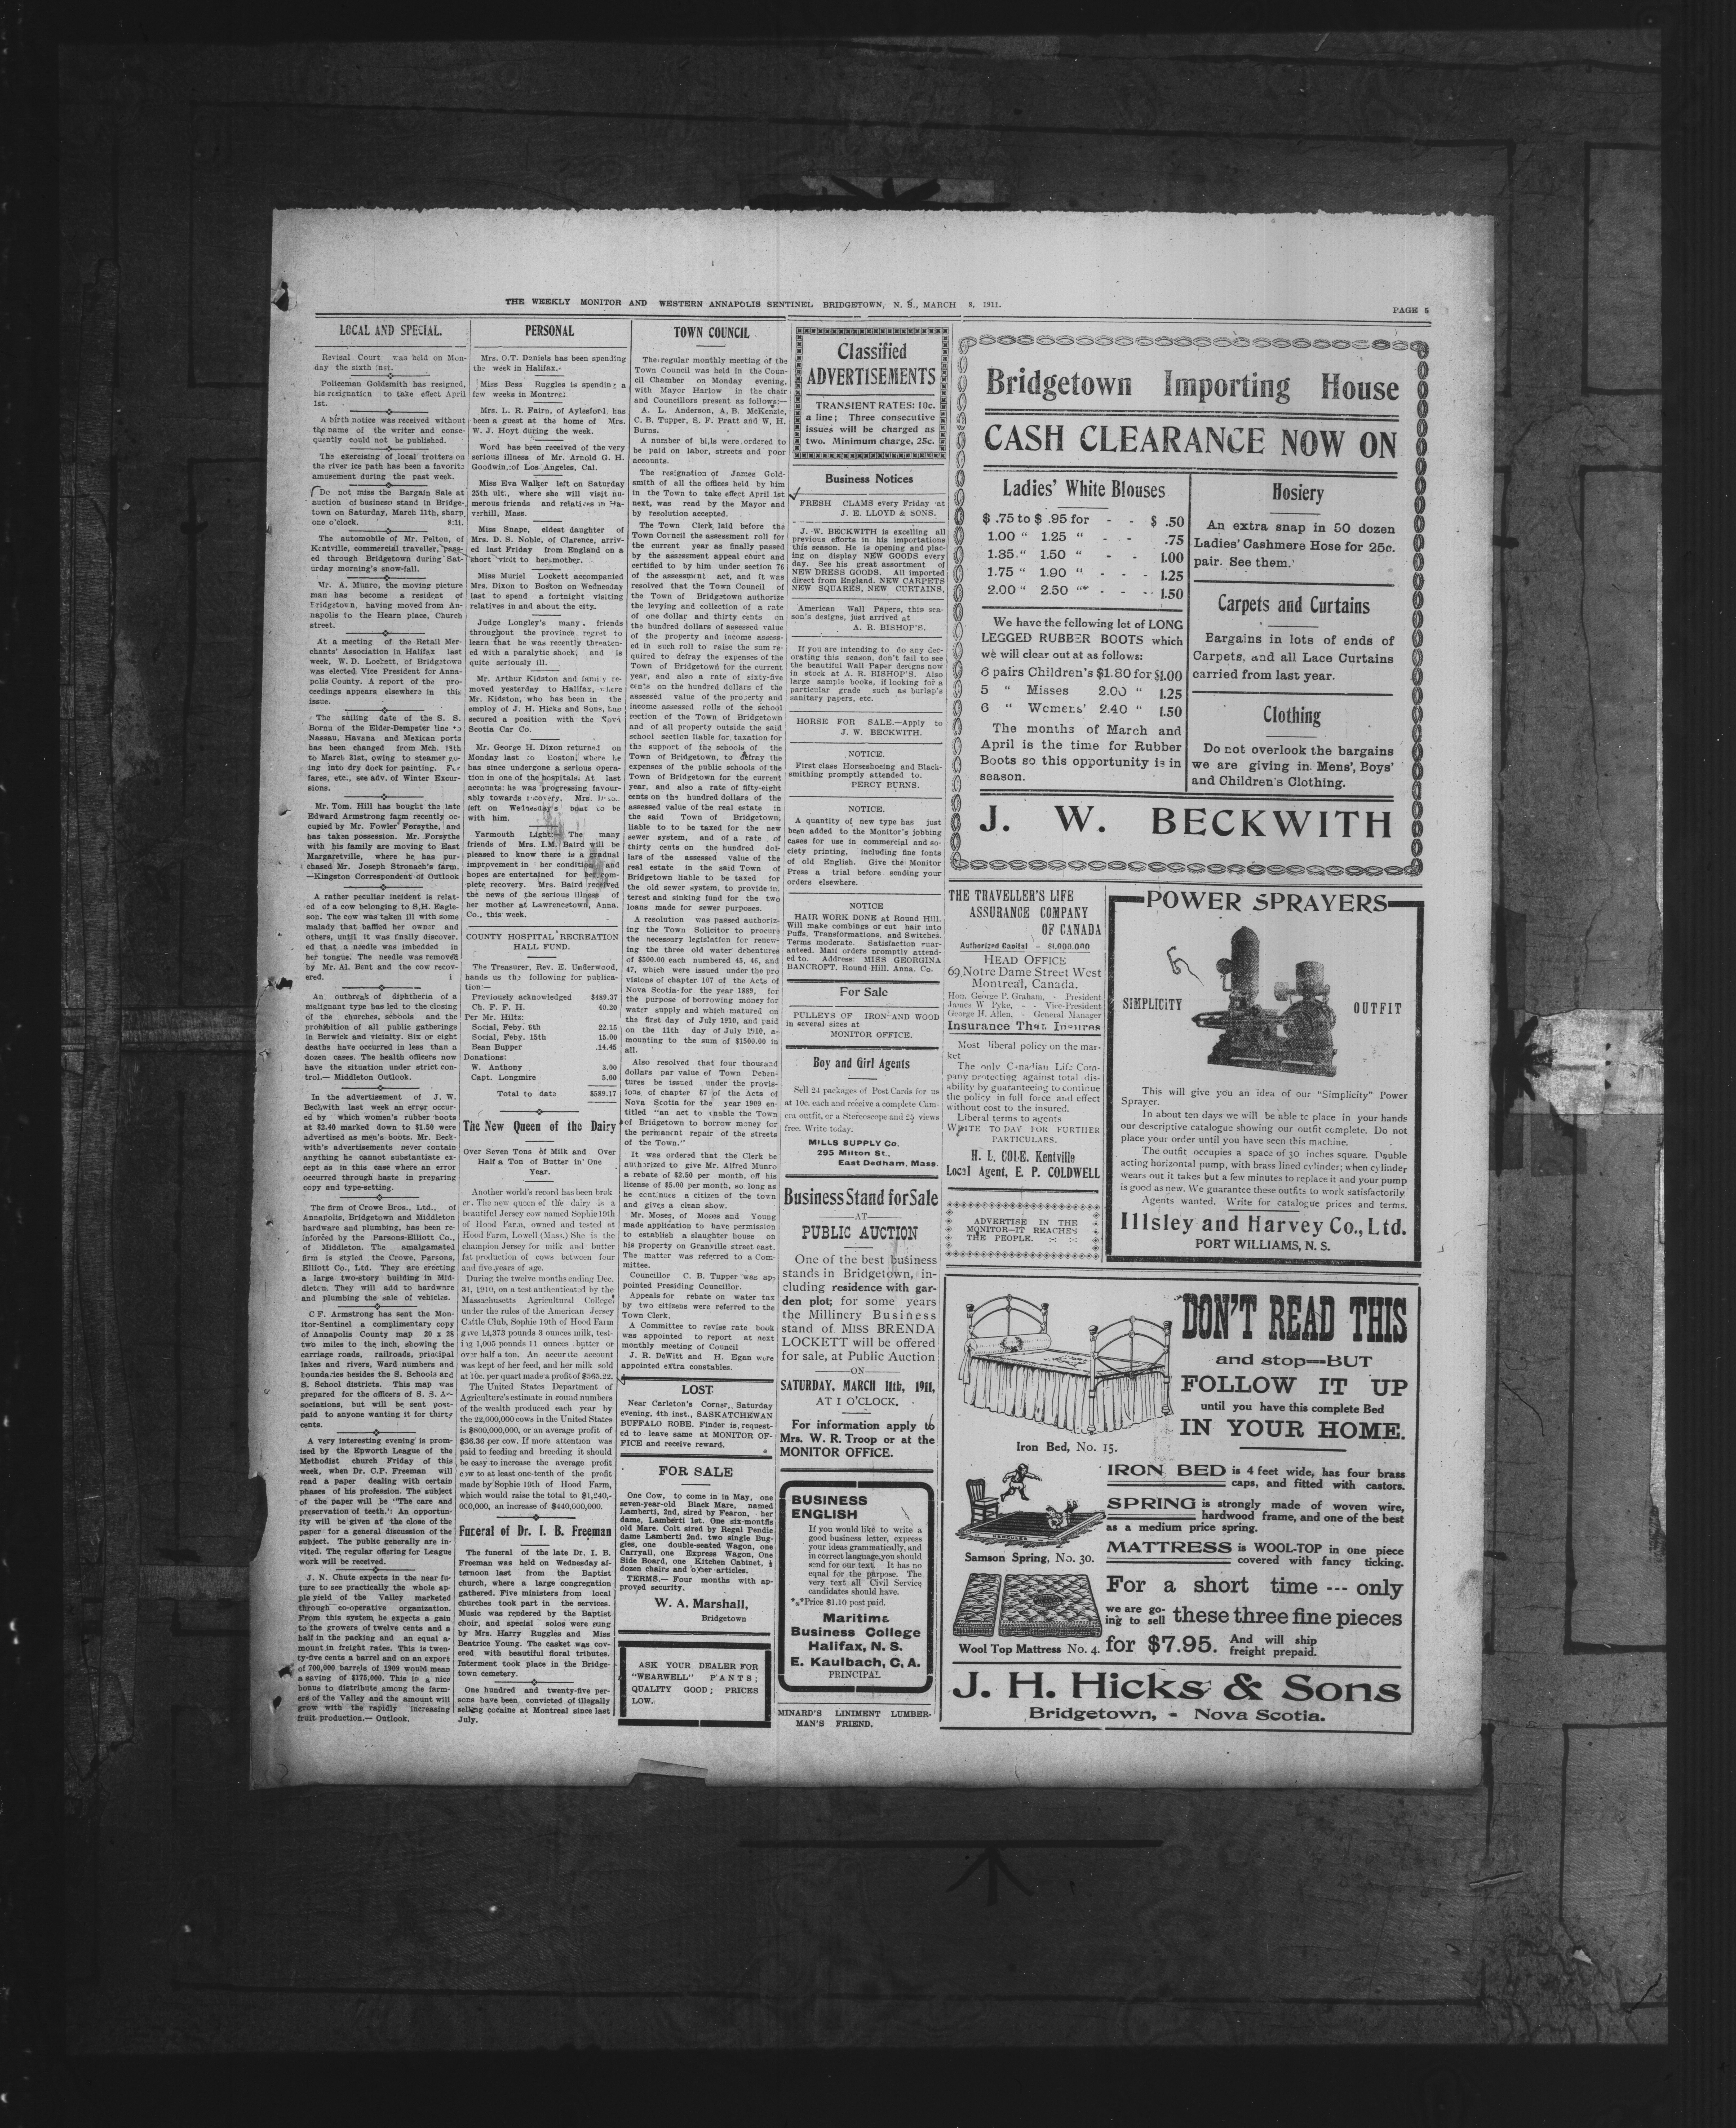 THE WEEKLY MONITOR AND WESTERN ANNAPOLIS SENTINEL BRIDGETOWN, N. S., MARCH 8, 1911.
PAGE 5
LOCAL AND SPECIAL.
Revisal Court was held on Mon-
day the sixth inst.
Policeman Goldsmith has resigned,
his resignation to take effect April
1st.
A birth notice was received without
the name of the writer and conse-
quently could not be published.
The exercising of local trotters on
the river ice path has been a favorite
amusement during the past week.
Do not miss the Bargain Sale at
auction of business stand in Bridge-
town on Saturday, March 11th, sharp
one o'clock. 8:11.
The automobile of Mr. Pelton, of
Kentville, commercial traveller, pass-
ed through Bridgetown during Sat-
urday morning's snow-fall.
Mr. A. Munro, the moving picture
man has become a resident of
Bridgetown, having moved from An-
napolis to the Hearn place, Church
street.
At a meeting of the Retail Mer-
chants' Association in Halifax last
week, W. D. Lockett, of Bridgetown
was elected Vice President for Anna-
polis County. A report of the pro-
ceedings appears elsewhere in this
issue.
The sailing date of the S. S.
Bornu of the Elder-Dempster line to
Nassau, Havana and Mexican ports
has been changed from Mch. 18th
to March 31st, owing to steamer go-
ing into dry dock for painting. For
fares, etc., see adv. of Winter Excur-
sions.
Mr. Tom. Hill has bought the late
Edward Armstrong farm recently oc-
cupied by Mr. Fowler Forsythe, and
has taken possession. Mr. Forsythe
with his family are moving to East
Margaretville, where he has pur-
chased Mr. Joseph Stronach's farm.
—Kingston Correspondent of Outlook
A rather peculiar incident is relat-
ed of a cow belonging to S.H. Eagle-
son. The cow was taken ill with some
malady that baffled her owner and
others, until it was finally discover-
ed that a needle was imbedded in
her tongue. The needle was removed
by Mr. Al. Bent and the cow recov-
ered.
An outbreak of diphtheria of a
malignant type has led to the closing
of the churches, schools and the
prohibition of all public gatherings
in Berwick and vicinity. Six or eight
deaths have occurred in less than a
dozen cases. The health officers now
have the situation under strict con-
trol.— Middleton Outlook.
In the advertisement of J. W.
Beckwith last week an error occur-
ed by which women's rubber boots
at $2.40 marked down to $1.50 were
advertised as men's boots. Mr. Beck-
with's advertisements never contain
anything he cannot substantiate ex-
cept as in this case where an error
occurred through haste in preparing
copy and type-setting.
The firm of Crowe Bros., Ltd., of
Annapolis, Bridgetown and Middleton
hardware and plumbing, has been re-
inforced by the Parsons-Elliott Co.,
of Middleton. The amalgamated
firm is styled the Crowe, Parsons,
Elliott Co., Ltd. They are erecting
a large two-story building in Mid-
dleton. They will add to hardware
and plumbing the sale of vehicles.
C F. Armstrong has sent the Mon-
itor-Sentinel a complimentary copy
of Annapolis County map 20 x 28
two miles to the inch, showing the
carriage roads, railroads, principal
lakes and rivers, Ward numbers and
boundaries besides the S. Schools and
S. School districts. This map was
prepared for the officers of S. S. As-
sociations, but will be sent post-
paid to anyone wanting it for thirty
cents.
A very interesting evening is prom-
ised by the Epworth League of the
Methodist church Friday of this
week, when Dr. C.P. Freeman will
read a paper dealing with certain
phases of his profession. The subject
of the paper will be "The care and
preservation of teeth." An opportun-
ity will be given at the close of the
paper for a general discussion of the
subject. The public generally are in-
vited. The regular offering for League
work will be received.
J. N. Chute expects in the near fu-
ture to see practically the whole ap-
ple yield of the Valley marketed
through co-operative organization.
From this system he expects a gain
to the growers of twelve cents and a
half in the packing and an equal a-
mount in freight rates. This is twen-
ty-five cents a barrel and on an export
of 700,000 barrels of 1909 would mean
a saving of $175,000. This is a nice
bonus to distribute among the farm-
ers of the Valley and the amount will
grow with the rapidly increasing
fruit production.— Outlook.
PERSONAL
Mrs. O.T. Daniels has been spending
the week in Halifax.
Miss Bess Ruggles is spending a
few weeks in Montreal.
Mrs. L. R. Fairn, of Aylesford, has
been a guest at the home of Mrs.
W. J. Hoyt during the week.
Word has been received of the very
serious illness of Mr. Arnold G. H.
Goodwin, of Los Angeles, Cal.
Miss Eva Walker left on Saturday
25th ult., where she will visit nu-
merous friends and relatives in Ha-
verhill, Mass.
Miss Snape, eldest daughter of
Mrs. D. S. Noble, of Clarence, arriv-
ed last Friday from England on a
short visit to her mother.
Miss Muriel Lockett accompanied
Mrs. Dixon to Boston on Wednesday
last to spend a fortnight visiting
relatives in and about the city.
Judge Longley's many friends
throughout the province regret to
learn that he was recently threaten-
ed with a paralytic shock, and is
quite seriously ill.
Mr. Arthur Kidston and family re-
moved yesterday to Halifax, where
Mr. Kidston, who has been in the
employ of J. H. Hicks and Sons, has
secured a position with the Nova
Scotia Car Co.
Mr. George H. Dixon returned on
Monday last to Boston, where he
has since undergone a serious opera-
tion in one of the hospitals. At last
accounts he was progressing favour-
ably towards recovery. Mrs.
left on Wednesday's boat to be
with him.
Yarmouth Light:— The many
friends of Mrs. I.M. Baird will be
pleased to know there is a gradual
improvement in her condition and
hopes are entertained for her com-
plete recovery. Mrs. Baird received
the news of the serious illness of
her mother at Lawrencetown, Anna.
Co., this week.
COUNTY HOSPITAL RECREATION
HALL FUND.
The Treasurer, Rev. E. Underwood,
hands us the following for publica-
tion:—
Previously acknowledged $489.37
Ch. F. F. H. 40.20
Per Mr. Hiltz:
Social, Feby. 6th 22.15
Social, Feby. 15th 15.00
Bean Supper 14.45
Donations:
W. Anthony 3.00
Capt. Longmire 5.00
Total to date $589.17
The New Queen of the Dairy
Over Seven Tons of Milk and Over
Half a Ton of Butter in One
Year.
Another world's record has been brok
er. The new queen of the dairy is a
beautiful Jersey cow named Sophie 19th
of Hood Farm, owned and tested at
Hood Farm, Lowell (Mass.) She is the
champion Jersey for milk and butter
fat production of cows between four
and five years of age.
During the twelve months ending Dec.
31, 1910, on a test authenticated by the
Massachusetts Agricultural College
under the rules of the American Jersey
Cattle Club, Sophie 19th of Hood Farm
gave 14,373 pounds 3 ounces milk, test-
ing 1,005 pounds 11 ounces butter or
over half a ton. An accurate account
was kept of her feed, and her milk sold
at 10c. per quart made a profit of $565.22.
The United States Department of
Agriculture's estimate in round numbers
of the wealth produced each year by
the 22,000,000 cows in the United States
is $800,000,000, or an average profit of
$36.36 per cow. If more attention was
paid to feeding and breeding it should
be easy to increase the average profit
cow to at least one-tenth of the profit
made by Sophie 19th of Hood Farm,
which would raise the total to $1,240,-
000,000, an increase of $440,000,000.
Funeral of Dr. I. B. Freeman
The funeral of the late Dr. I. B.
Freeman was held on Wednesday af-
ternoon last from the Baptist
church, where a large congregation
gathered. Five ministers from local
churches took part in the services.
Music was rendered by the Baptist
choir, and special solos were sung
by Mrs. Harry Ruggles and Miss
Beatrice Young. The casket was cov-
ered with beautiful floral tributes.
Interment took place in the Bridge-
town cemetery.
One hundred and twenty-five per-
sons have been convicted of illegally
selling cocaine at Montreal since last
July.
TOWN COUNCIL
The regular monthly meeting of the
Town Council was held in the Coun-
cil Chamber on Monday evening,
with Mayor Harlow in the chair
and Councillors present as follows:—
A. L. Anderson, A. B. McKenzie,
C. B. Tupper, S. F. Pratt and W. H.
Burns.
A number of bills were ordered to
be paid on labor, streets and poor
accounts.
The resignation of James Gold-
smith of all the offices held by him
in the Town to take effect April 1st
next, was read by the Mayor and
by resolution accepted.
The Town Clerk laid before the
Town Council the assessment roll for
the current year as finally passed
by the assessment appeal court and
certified to by him under section 76
of the assessment act, and it was
resolved that the Town Council of
the Town of Bridgetown authorize
the levying and collection of a rate
of one dollar and thirty cents on
the hundred dollars of assessed value
of the property and income assess-
ed in such roll to raise the sum re-
quired to defray the expenses of the
Town of Bridgetown for the current
year, and also a rate of sixty-five
cents on the hundred dollars of the
assessed value of the property and
income assessed rolls of the school
section of the Town of Bridgetown
and of all property outside the said
school section liable for taxation for
the support of the schools of the
Town of Bridgetown, to defray the
expenses of the public schools of the
Town of Bridgetown for the current
year, and also a rate of fifty-eight
cents on the hundred dollars of the
assessed value of the real estate in
the said Town of Bridgetown,
liable to to be taxed for the new
sewer system, and of a rate of
thirty cents on the hundred dol-
lars of the assessed value of the
real estate in the said Town of
Bridgetown liable to be taxed for
the old sewer system, to provide in-
terest and sinking fund for the two
loans made for sewer purposes.
A resolution was passed authoriz-
ing the Town Solicitor to procure
the necessary legislation for renew-
ing the three old water debentures
of $500.00 each numbered 45, 46, and
47, which were issued under the pro
visions of chapter 107 of the Acts of
Nova Scotia for the year 1889, for
the purpose of borrowing money for
water supply and which matured on
the first day of July 1910, and paid
on the 11th day of July 1910, a-
mounting to the sum of $1500.00 in
all.
Also resolved that four thousand
dollars par value of Town Deben-
tures be issued under the provis-
ions of chapter 67 of the Acts of
Nova Scotia for the year 1909 en-
titled "an act to enable the Town
of Bridgetown to borrow money for
the permanent repair of the streets
of the Town."
It was ordered that the Clerk be
authorized to give Mr. Alfred Munro
a rebate of $2.50 per month, off his
license of $5.00 per month, so long as
he continues a citizen of the town
and gives a clean show.
Mr. Moses, of Moses and Young
made application to have permission
to establish a slaughter house on
his property on Granville street east.
The matter was referred to a Com-
mittee.
Councillor C. B. Tupper was ap-
pointed Presiding Councillor.
Appeals for rebate on water tax
by two citizens were referred to the
Town Clerk.
A Committee to revise rate book
was appointed to report at next
monthly meeting of Council
J. R. DeWitt and H. Egan were
appointed extra constables.
LOST
Near Carleton's Corner, Saturday
evening, 4th inst., SASKATCHEWAN
BUFFALO ROBE. Finder is request-
ed to leave same at MONITOR OF-
FICE and receive reward.
FOR SALE
One Cow, to come in in May, one
seven-year-old Black Mare, named
Lamberti, 2nd, sired by Fearon, her
dame, Lamberti 1st. One six-months
old Mare. Colt sired by Regal Pendie
dame Lamberti 2nd. two single Bug-
gies, one double-seated Wagon, one
Carryall, one Express Wagon, One
Side Board, one Kitchen Cabinet,
dozen chairs and other articles.
TERMS.— Four months with ap-
proved security.
W. A. Marshall,
Bridgetown
ASK YOUR DEALER FOR
"WEARWELL" PANTS;
QUALITY GOOD; PRICES
LOW.
Classified
ADVERTISEMENTS
TRANSIENT RATES: 10c.
a line; Three consecutive
issues will be charged as
two. Minimum charge, 25c.
Business Notices
FRESH CLAMS every Friday at
J. E. LLOYD & SONS.
J. W. BECKWITH is excelling all
previous efforts in his importations
this season. He is opening and plac-
ing on display NEW GOODS every
day. See his great assortment of
NEW DRESS GOODS. All imported
direct from England. NEW CARPETS
NEW SQUARES, NEW CURTAINS.
American Wall Papers, this sea-
son's designs, just arrived at
A. R. BISHOP'S.
If you are intending to do any dec-
orating this season, don't fail to see
the beautiful Wall Paper designs now
in stock at A. R. BISHOP'S. Also
large sample books, if looking for a
particular grade such as burlap's
sanitary papers, etc.
HORSE FOR SALE.—Apply to
J. W. BECKWITH.
NOTICE.
First class Horseshoeing and Black-
smithing promptly attended to.
PERCY BURNS.
NOTICE.
A quantity of new type has just
been added to the Monitor's jobbing
cases for use in commercial and so-
ciety printing, including fine fonts
of old English. Give the Monitor
Press a trial before sending your
orders elsewhere.
NOTICE
HAIR WORK DONE at Round Hill.
Will make combings or cut hair into
Puffs, Transformations, and Switches.
Terms moderate. Satisfaction guar-
anteed. Mail orders promptly attend-
ed to. Address: MISS GEORGINA
BANCROFT, Round Hill. Anna. Co.
For Sale
PULLEYS OF IRON AND WOOD
in several sizes at
MONITOR OFFICE.
Boy and Girl Agents
Sell 24 packages of Post Cards for us
at 10c. each and receive a complete Cam-
era outfit, or a Stereoscope and 25 views
free. Write today.
MILLS SUPPLY Co.
295 Milton St.,
East Dedham, Mass.
Business Stand for Sale
—AT—
PUBLIC AUCTION
One of the best business
stands in Bridgetown, in-
cluding residence with gar-
den plot; for some years
the Millinery Business
stand of MISS BRENDA
LOCKETT will be offered
for sale, at Public Auction
—ON—
SATURDAY, MARCH 11th, 1911,
AT 1 O'CLOCK.
For information apply to
Mrs. W. R. Troop or at the
MONITOR OFFICE.
BUSINESS
ENGLISH
If you would like to write a
good business letter, express
your ideas grammatically, and
in correct language, you should
send for our text. It has no
equal for the purpose. The
very text all Civil Service
candidates should have.
*.*Price $1.10 post paid.
Maritime
Business College
Halifax, N. S.
E. Kaulbach, C. A.
PRINCIPAL
MINARD'S LINIMENT LUMBER-
MAN'S FRIEND.
Bridgetown Importing House
CASH CLEARANCE NOW ON
Ladies' White Blouses
$ .75 to $ .95 for - - $ .50
1.00 " 1.25 " - - .75
1.35 " 1.50 " - - 1.00
1.75 " 1.90 " - - - 1.25
2.00 " 2.50 " - - - 1.50
We have the following lot of LONG
LEGGED RUBBER BOOTS which
we will clear out at as follows:
6 pairs Children's $1.80 for $1.00
5 " Misses 2.00 " 1.25
6 " Womens' 2.40 " 1.50
The months of March and
April is the time for Rubber
Boots so this opportunity is in
season.
Hosiery
An extra snap in 50 dozen
Ladies' Cashmere Hose for 25c.
pair. See them.
Carpets and Curtains
Bargains in lots of ends of
Carpets, and all Lace Curtains
carried from last year.
Clothing
Do not overlook the bargains
we are giving in Mens', Boys'
and Children's Clothing.
J. W. BECKWITH
THE TRAVELLER'S LIFE
ASSURANCE COMPANY
OF CANADA
Authorized Capital – $1,000,000
HEAD OFFICE
69 Notre Dame Street West
Montreal, Canada.
Hon. George P. Graham, - President
James W Pyke, - - Vice-President
George H. Allen, - General Manager
Insurance That Insures
Most liberal policy on the mar-
ket
The only Canadian Life Com-
pany protecting against total dis-
ability by guaranteeing to continue
the policy in full force and effect
without cost to the insured.
Liberal terms to agents
WRITE TO DAY FOR FURTHER
PARTICULARS.
H. L. COLE, Kentville
Local Agent, E. P. COLDWELL
ADVERTISE IN THE
MONITOR—IT REACHES
THE PEOPLE.
POWER SPRAYERS
SIMPLICITY
OUTFIT
This will give you an idea of our "Simplicity" Power
Sprayer.
In about ten days we will be able to place in your hands
our descriptive catalogue showing our outfit complete. Do not
place your order until you have seen this machine.
The outfit occupies a space of 30 inches square. Double
acting horizontal pump, with brass lined cylinder; when cylinder
wears out it takes but a few minutes to replace it and your pump
is good as new. We guarantee these outfits to work satisfactorily
Agents wanted. Write for catalogue prices and terms.
Illsley and Harvey Co., Ltd.
PORT WILLIAMS, N. S.
DON'T READ THIS
and stop---BUT
FOLLOW IT UP
until you have this complete Bed
IN YOUR HOME.
Iron Bed, No. 15.
IRON BED is 4 feet wide, has four brass
caps, and fitted with castors.
SPRING is strongly made of woven wire,
hardwood frame, and one of the best
as a medium price spring.
Samson Spring, No. 30.
MATTRESS is WOOL-TOP in one piece
covered with fancy ticking.
For a short time --- only
we are go-
ing to sell these three fine pieces
Wool Top Mattress No. 4.
for $7.95. And will ship
freight prepaid.
J. H. Hicks & Sons
Bridgetown, - Nova Scotia.